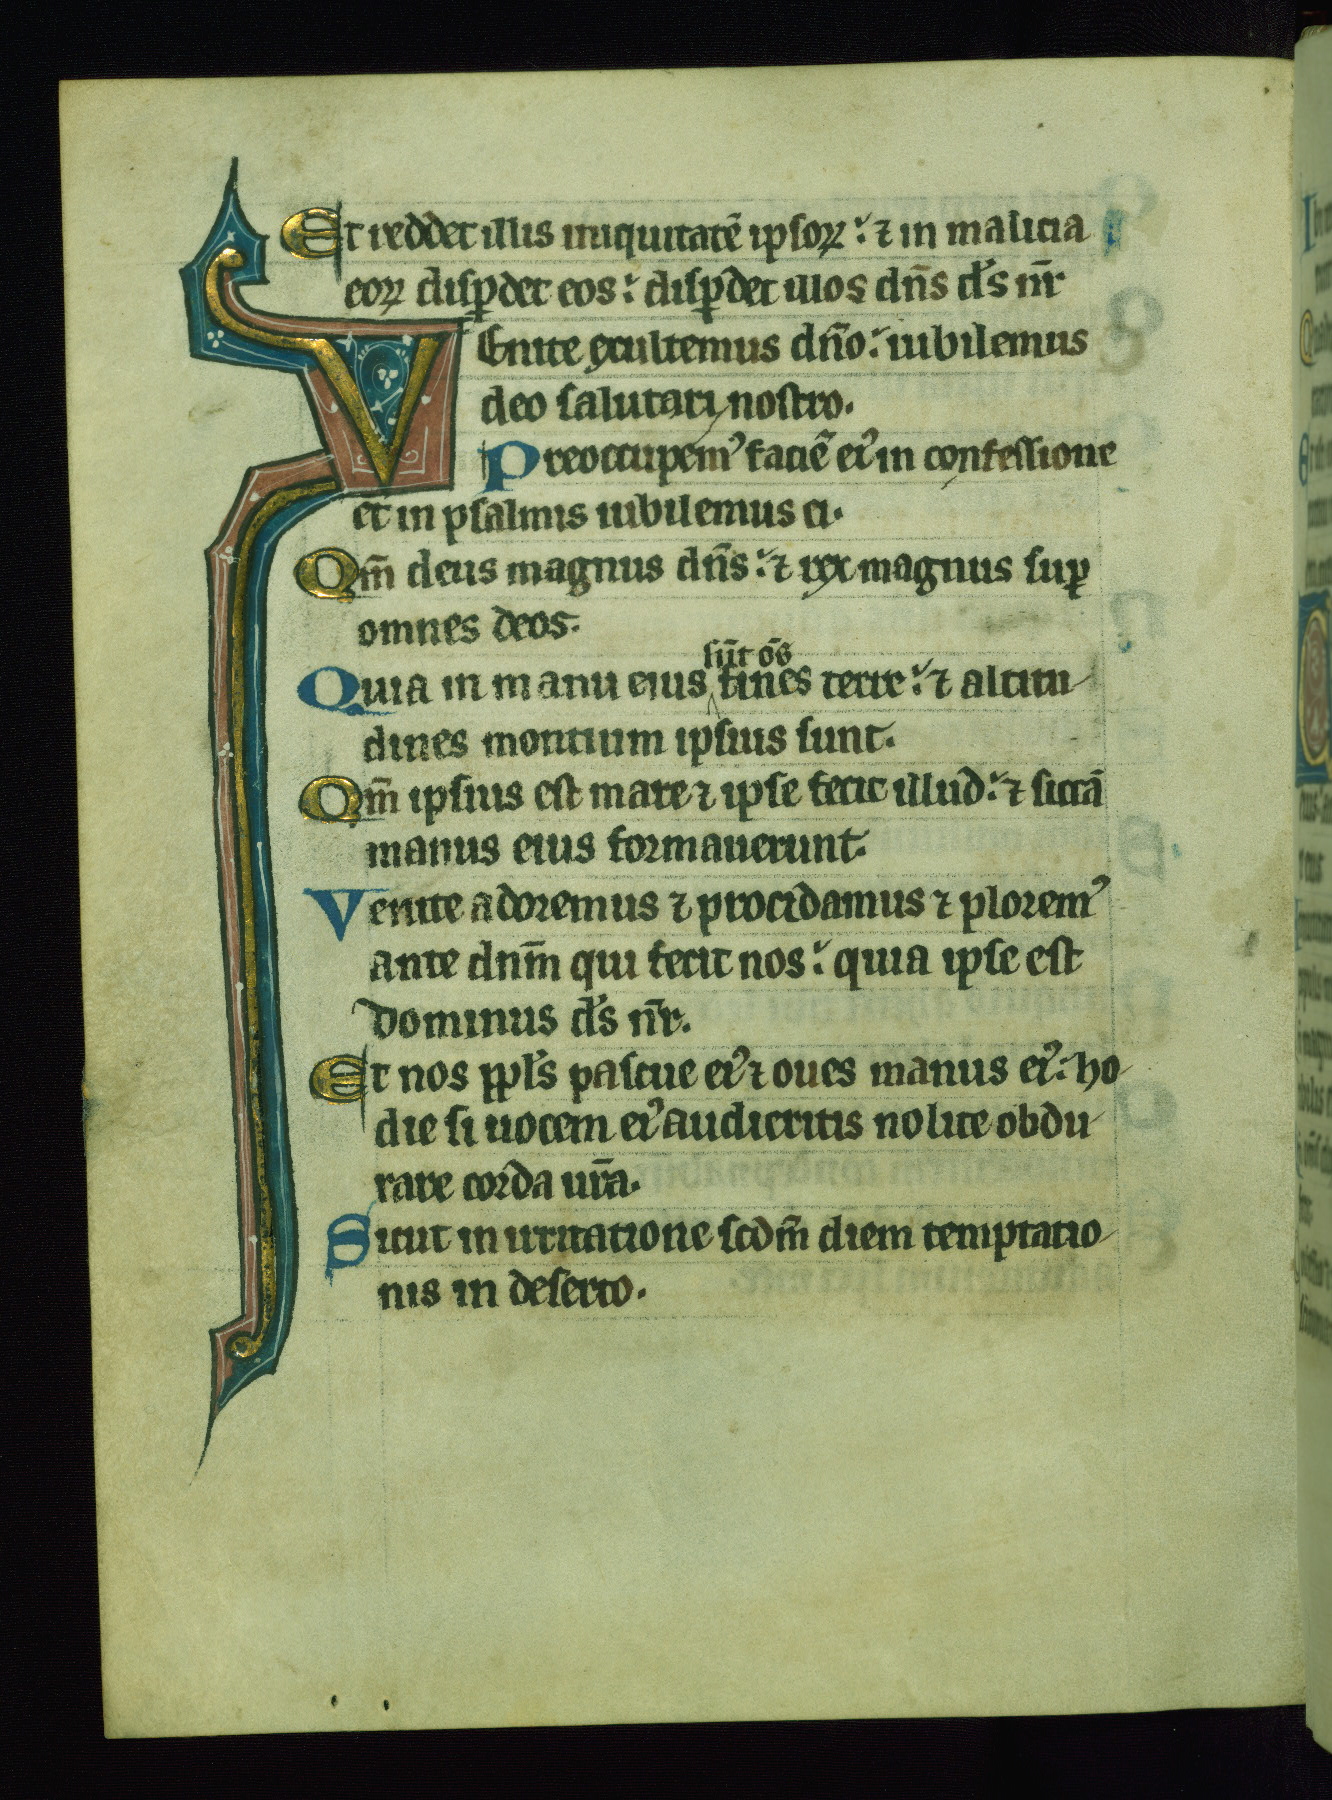 Et reddet illis iniquitatē ipsoꝝ: ⁊ in malicia
eoꝝ disꝑdet eos: disꝑdet illos dn̄s ds̄ nr̄
VEnite exultemus dn̄o: iubilemus
deo salutari nostro.
Preoccupem᾽ faciē ei᾽ in confessione
et in psalmis iubilemus ei.
Qm̄ deus magnus dn̄s: ⁊ rex magnus suꝑ
omnes deos.
sūt om̄s
Quia in manu eius fines terre: ⁊ altitu
dines montium ipsius sunt.
Qm̄ ipsius est mare ⁊ ipse fecit illud: ⁊ siccā
manus eius formauerunt.
Venite adoremus ⁊ procidamus ⁊ plorem᾽
ante dnm̄ qui fecit nos: quia ipse est
dominus ds̄ nr̄.
Et nos ppl̄s pascue ei᾽ ⁊ oues manus ei᾽: ho
die si uocem ei᾽ audieritis nolite obdu
rare corda ur̄a.
Sicut in irritatione scdm̄ diem temptatio
nis in deserto.